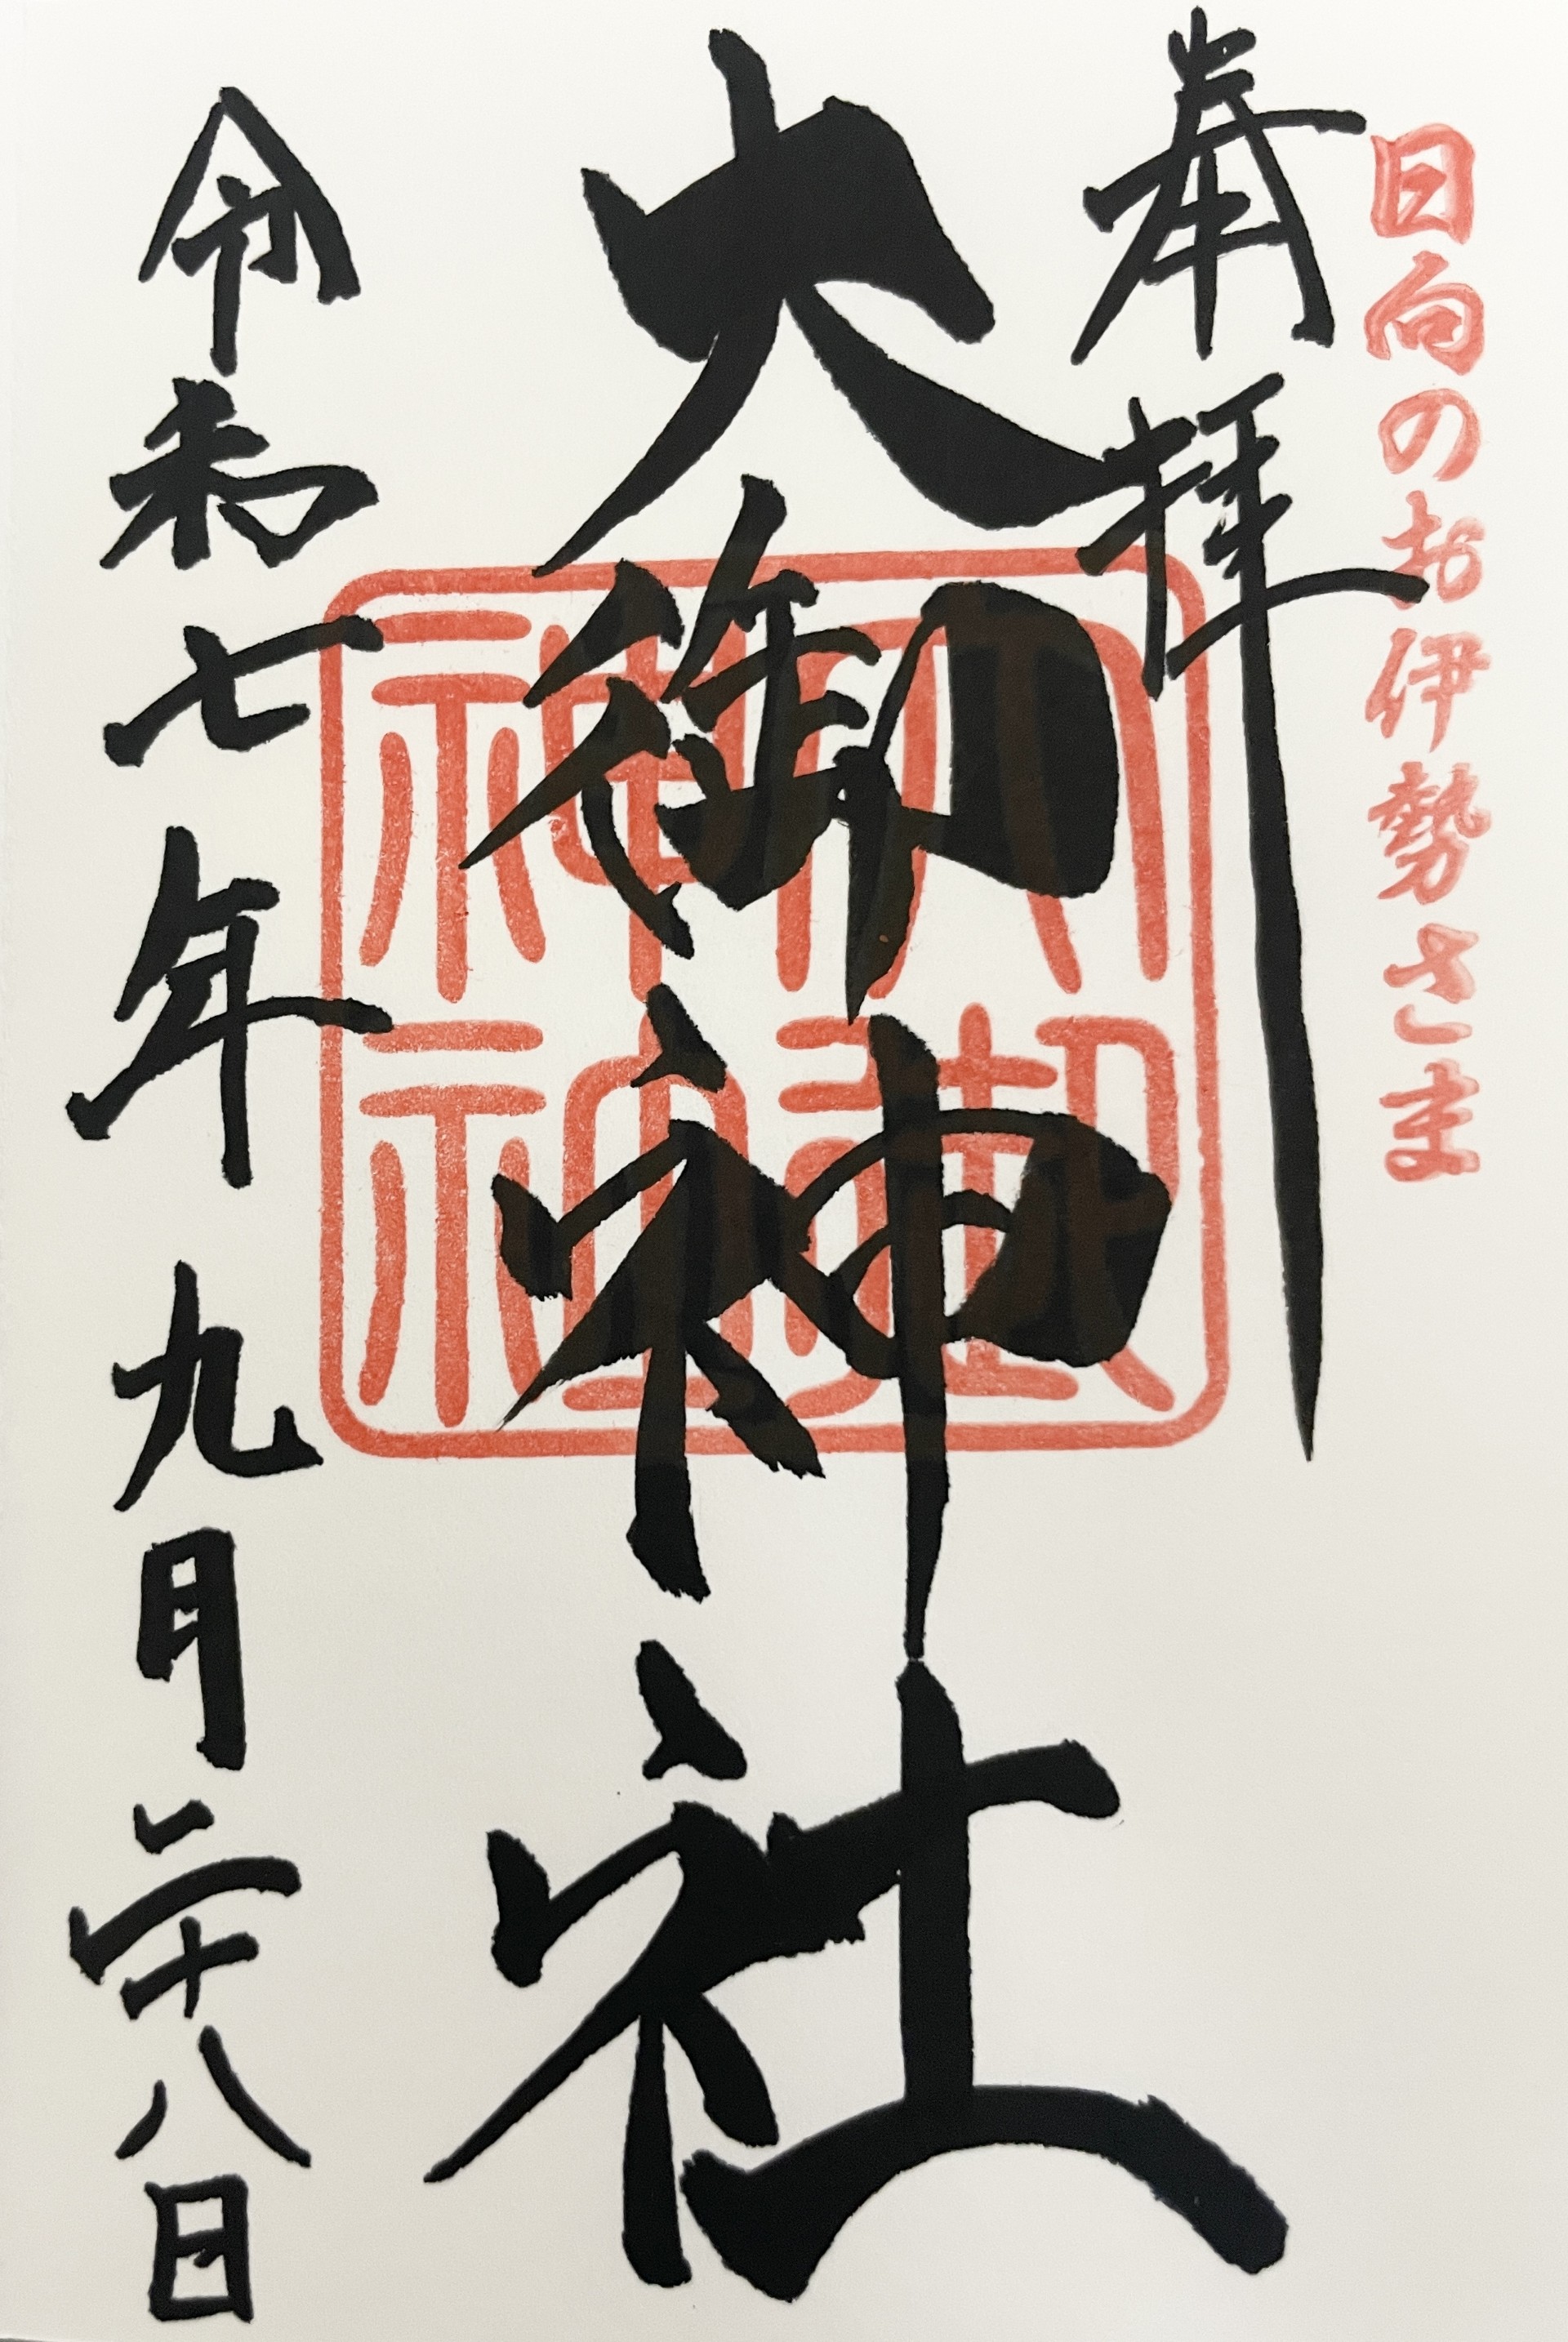 日向のお伊勢さま
奉拝
大御神社
大御神社
令和七年九月二十八日